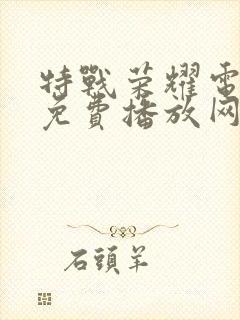 特戰荣耀電
免費播放网
石頭羊